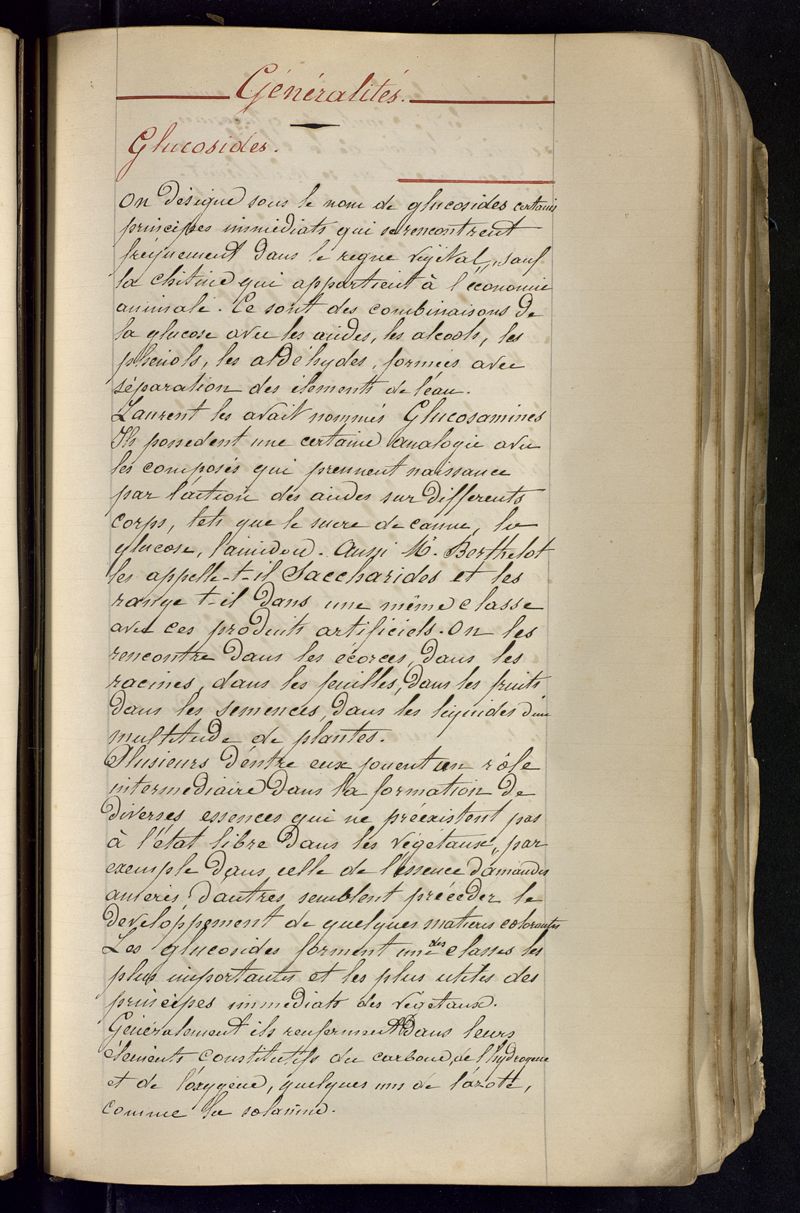 Généralités.
Glucosides.
On désigne sous le nom de glucosides certains
principes immédiats qui se rencontrent
fréquement dans le regne végétal, sauf
la chitine qui appartient à l'économie
animale. Ce sont des combinaisons de
la glucose avec les acides, les alcools, les
phénols, les aldéhydes, formées avec
séparation des éléments de l'eau.
Laurent les avait nommés Glucosamines
Ils possedent une certaine analogie avec
les composés qui prennent naissance
par l'action des acides sur differents
corps, tels que le sucre de canne, le
glucose, l'amidon. Aussi Mr. Berthelot
les appelle-t-il Saccharides et les
range t-il dans une même classe
avec ces produits artificiels. On les
rencontre dans les écorces, dans les
racines, dans les feuilles, dans les fruits
dans les semences, dans les liquides d'une
multitude de plantes.
Plusieurs d'entre eux jouent un rôle
intermediaire dans la formation de
diverses essences qui ne préexistent pas
à l'état libre dans les végétaux, par
exemple dans celle de l'essence d'amandes
amères, d'autres semblent précéder le
developpement de quelques matieres colorantes
Les glucosides forment une des classes les
plus importantes et les plus utiles des
principes immediats des végétaux.
Généralement ils renferment dans leurs
éléments constitutifs du carbone, de l'hydrogene
et de l'oxygene, quelques uns de l'azote,
comme la solanine.